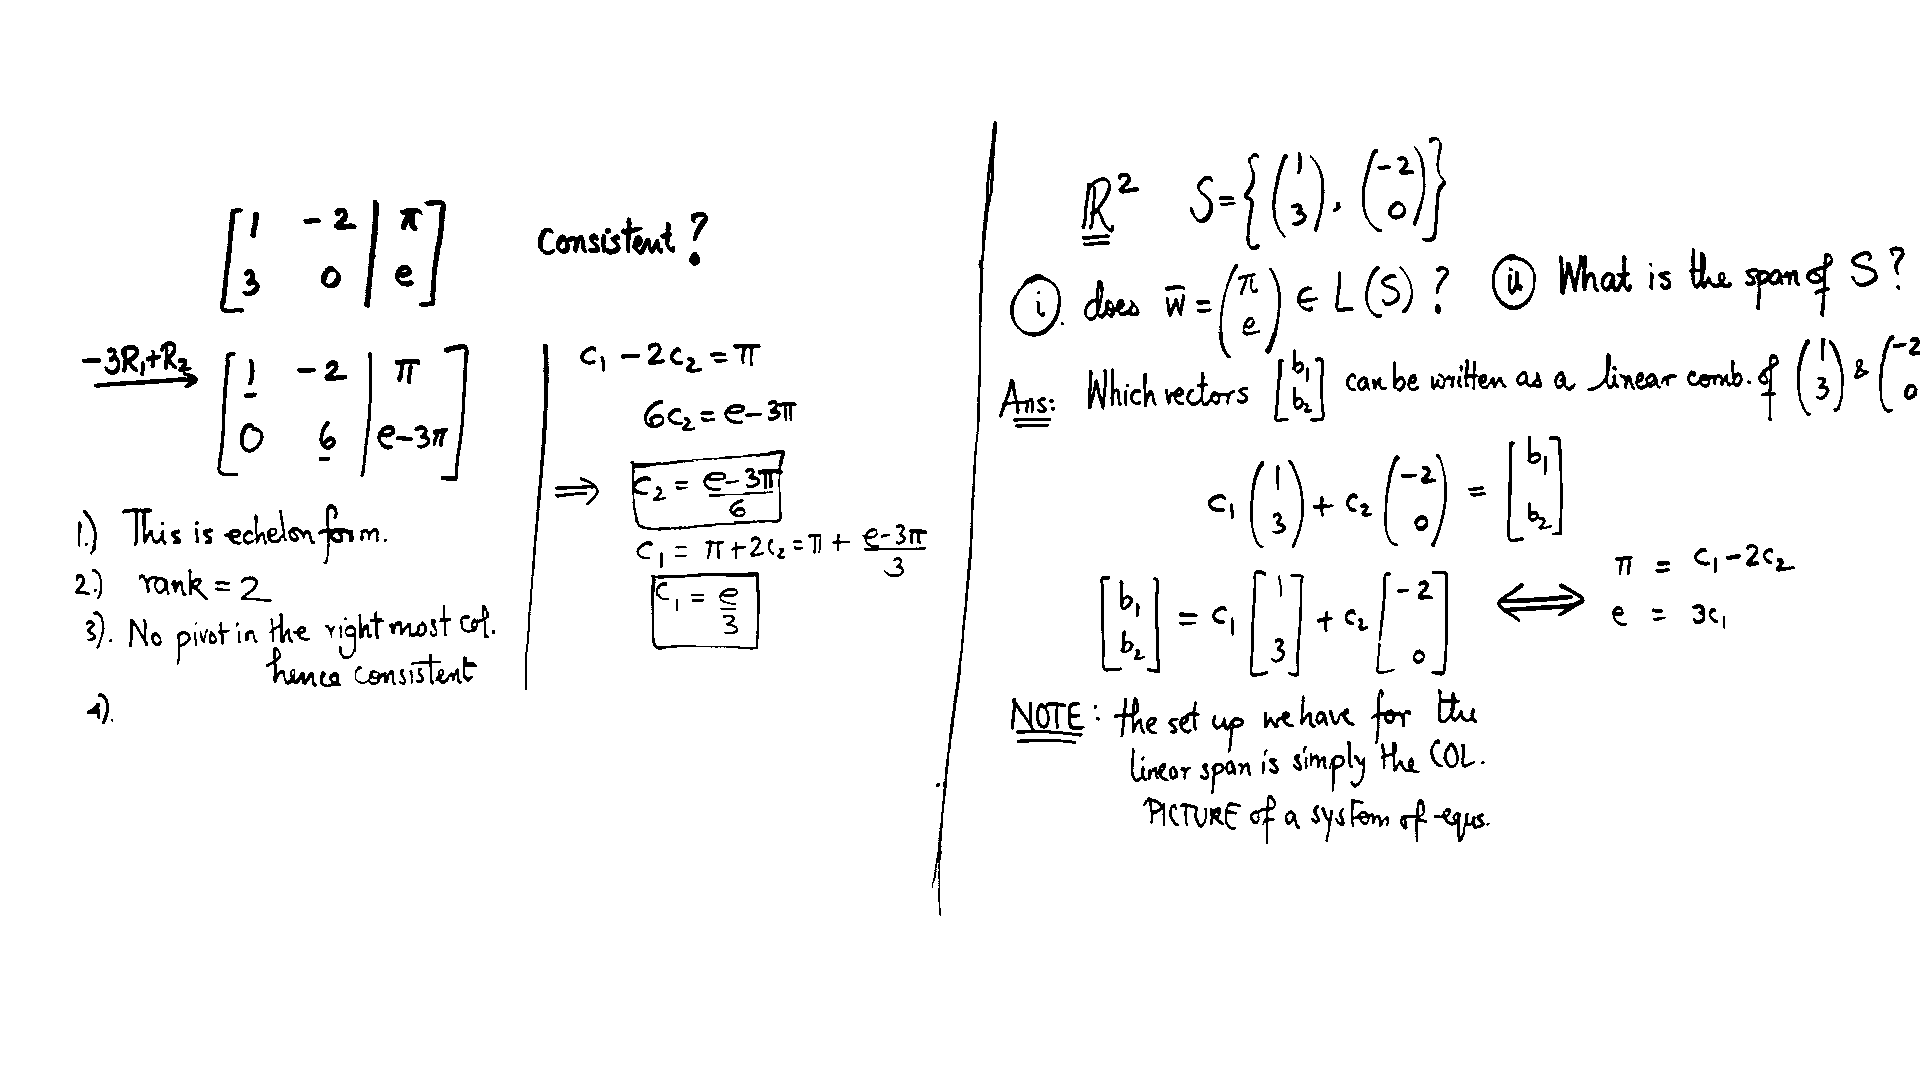 [ 1 -2 | π ]
[ 3 0 | e ]
Consistent?
-3R₁+R₂ → [ 1 -2 | π ]
[ 0 6 | e-3π ]
1.) This is echelon form.
2.) rank = 2
3). No pivot in the right most col.
hence consistent
4).
c₁ - 2c₂ = π
6c₂ = e-3π
⇒ c₂ = (e-3π)/6
c₁ = π+2c₂ = π + (e-3π)/3
c₁ = e/3
ℝ² S = { (1 3), (-2 0) }
(i). does w̄ = (π e) ∈ L(S)? (ii) What is the span of S?
Ans: Which vectors [b₁ b₂] can be written as a linear comb. of (1 3) & (-2 0
c₁ (1 3) + c₂ (-2 0) = [b₁ b₂]
[b₁ b₂] = c₁ [1 3] + c₂ [-2 0] ⟺ π = c₁-2c₂
e = 3c₁
NOTE: the set up we have for the
linear span is simply the COL.
PICTURE of a system of equs.